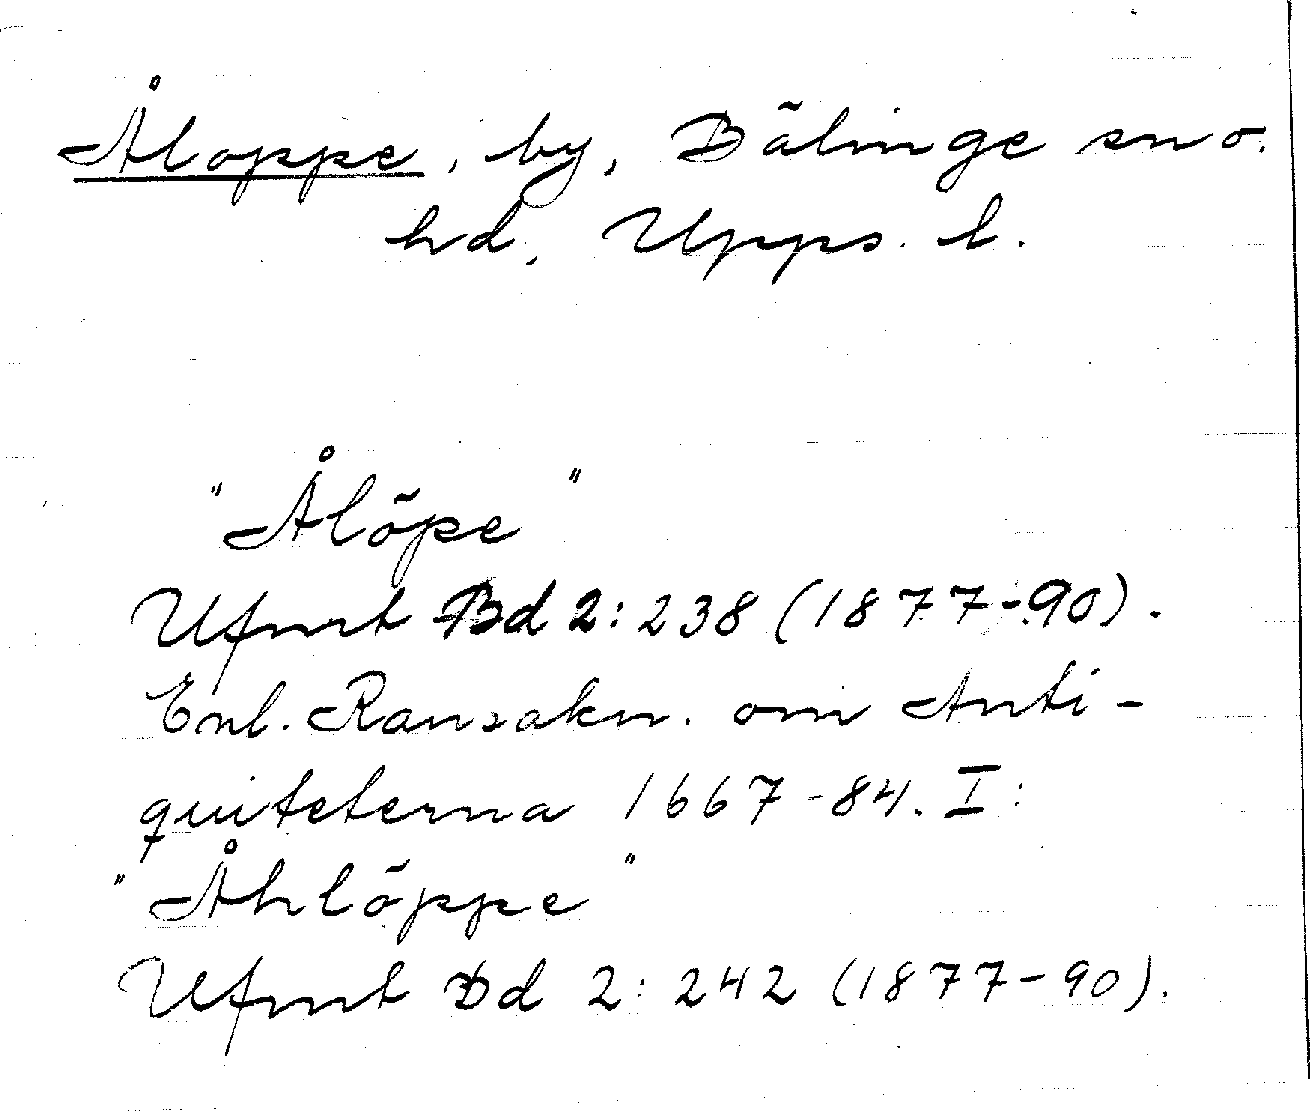 Åloppe, by, Bälinge sn o.
hd, Upps. l.
"Ålöpe"
Ufmt Bd 2:238 (1877-90).
Enl. Ransakn. om Anti-
quiteterna 1667-84. I:
"Åhlöppe"
Ufmt Bd 2:242 (1877-90).